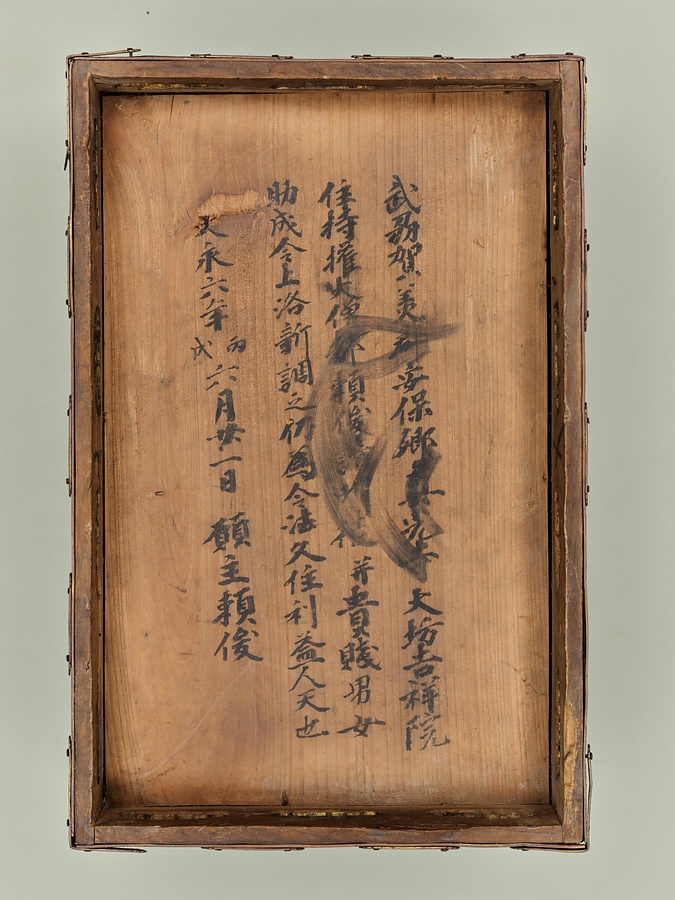 武刕賀美郡安保郷 大坊吉祥院
住持権大僧都頼俊 并貴賤男女
助成令上洛新調之仍為令法久住利益人天也
大永六年丙戌六月廿一日 願主頼俊